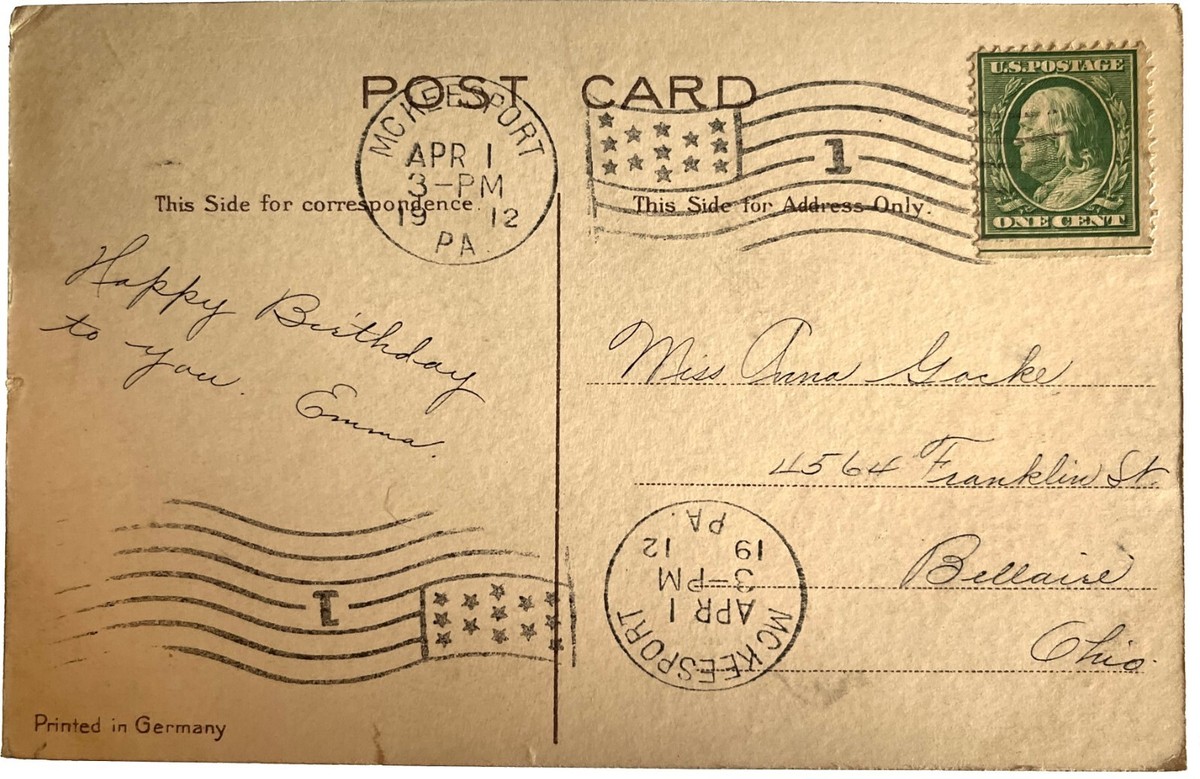 POST CARD
MCKEESPORT
APR 1
3-PM
19 12
PA.
1
U.S. POSTAGE
ONE CENT
This Side for correspondence.
This Side for Address Only.
Happy Birthday
to you.
Emma.
Miss Anna Gocke
4564 Franklin St.
Bellaire
Ohio.
1
MCKEESPORT
APR 1
3-PM
19 12
PA.
Printed in Germany